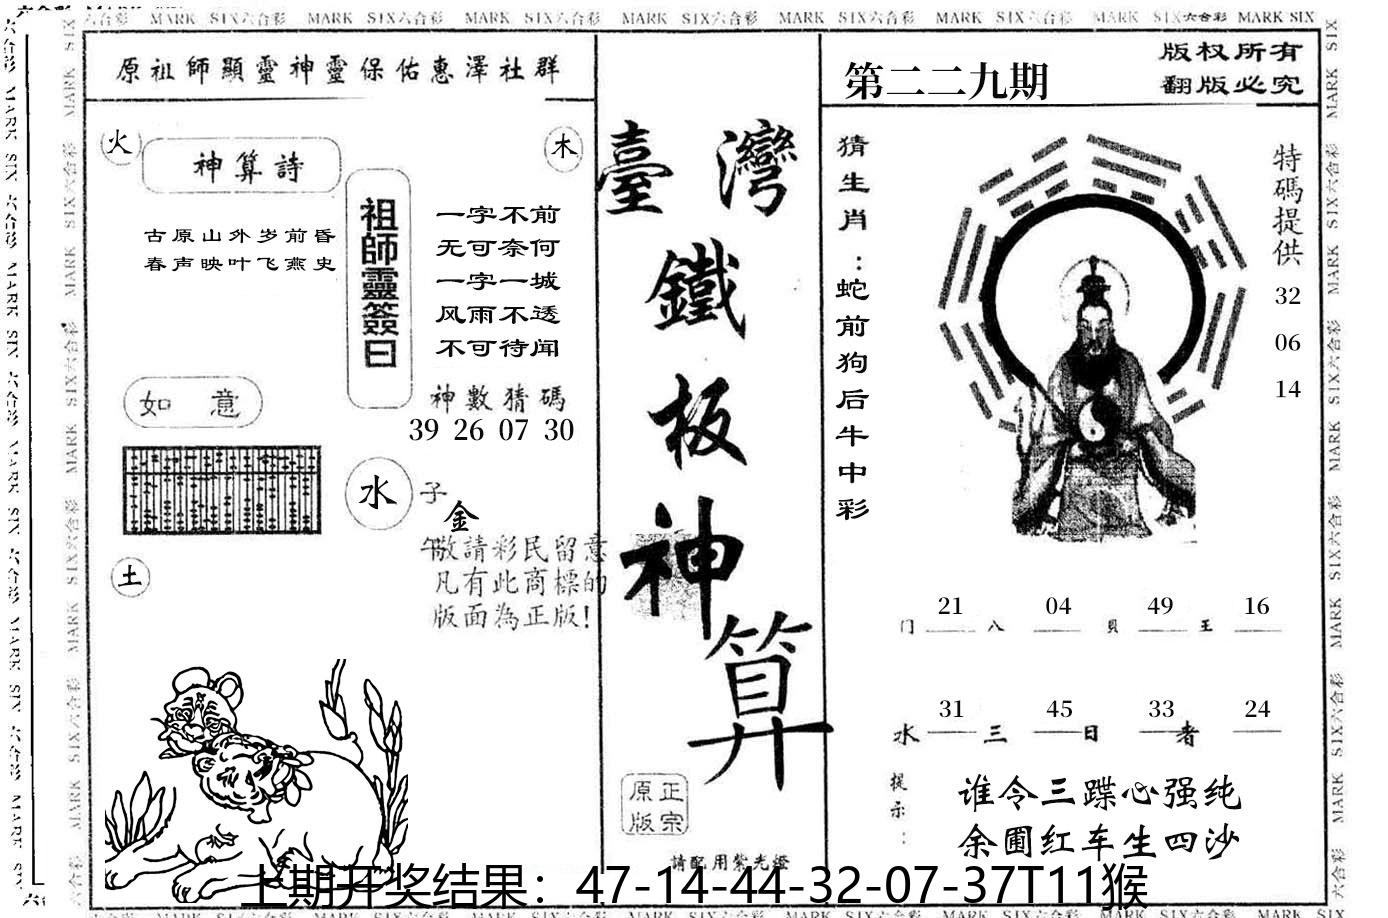 MARK SIX六合彩 MARK SIX六合彩 MARK SIX六合彩 MARK SIX六合彩 MARK SIX六合彩 MARK SIX六合彩 MARK SIX六合彩 MARK SIX
原祖師顯靈神靈保佑惠澤社群
火
神算詩
木
古原山外岁前昏
春声映叶飞燕史
祖師靈簽曰
一字不前
无可奈何
一字一城
风雨不透
不可待闻
如意
神數猜碼
39 26 07 30
水
子
金
午
敬請彩民留意
凡有此商標的
版面為正版!
土
臺灣
鐵板神算
正宗
原版
請配用紫光燈
第二二九期
版权所有
翻版必究
猜生肖:蛇前狗后牛中彩
特碼提供
32
06
14
21 04 49 16
门 八 贝 王
31 45 33 24
水 三 日 者
提示:
谁令三蹀心强纯
余圃红车生四沙
上期开奖结果：47-14-44-32-07-37T11猴